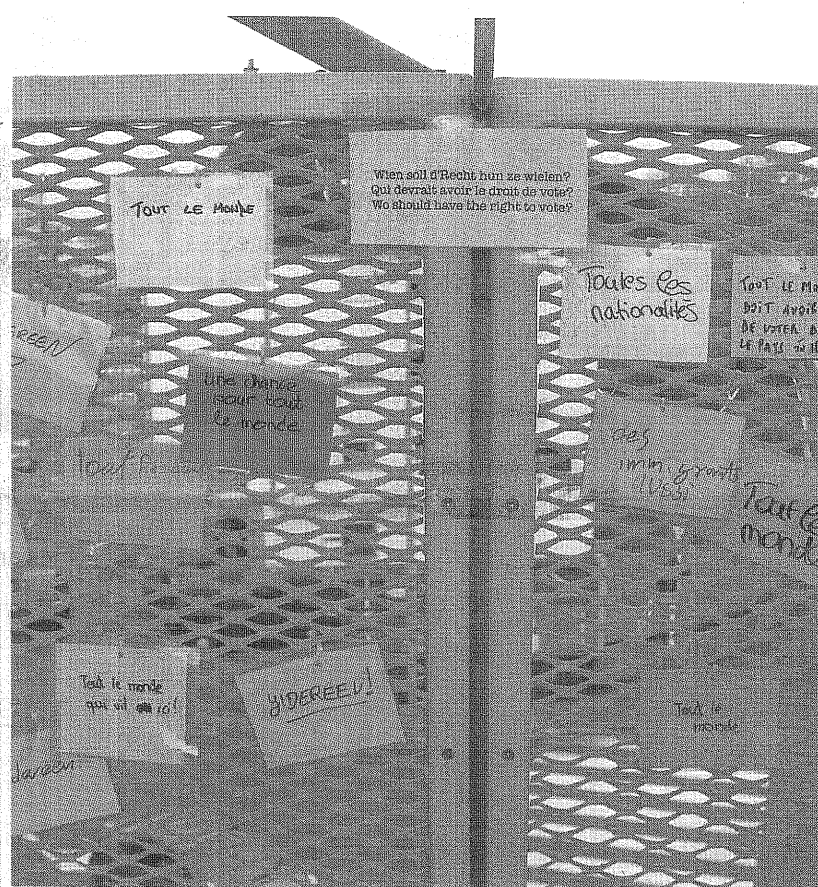 Wien soll d'Recht hun ze wielen?
Qui devrait avoir le droit de vote?
Wo should have the right to vote?
TOUT LE MONDE
Toutes les
nationalités
TOUT LE MO
DOIT AVOIR
DE VOTER D
LE PAYS OÙ
EREEN
Une chance
pour tout
le monde
Tout
des
immigrants
Tout le
monde
Tout le monde
qui vit ici!
YIDEREEN!
Tout le
monde